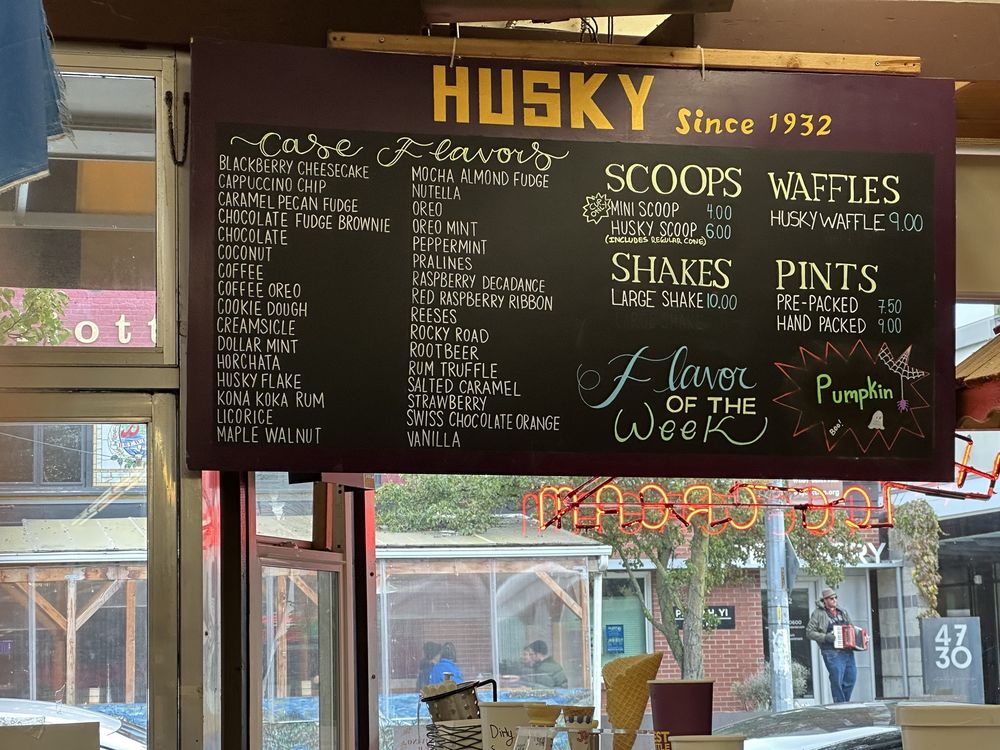 HUSKY
Since 1932
Case Flavors
BLACKBERRY CHEESECAKE
CAPPUCCINO CHIP
CARAMEL PECAN FUDGE
CHOCOLATE FUDGE BROWNIE
CHOCOLATE
COCONUT
COFFEE
COFFEE OREO
COOKIE DOUGH
CREAMSICLE
DOLLAR MINT
HORCHATA
HUSKY FLAKE
KONA KOKA RUM
LICORICE
MAPLE WALNUT
MOCHA ALMOND FUDGE
NUTELLA
OREO
OREO MINT
PEPPERMINT
PRALINES
RASPBERRY DECADANCE
RED RASPBERRY RIBBON
REESES
ROCKY ROAD
ROOTBEER
RUM TRUFFLE
SALTED CARAMEL
STRAWBERRY
SWISS CHOCOLATE ORANGE
VANILLA
SCOOPS
MINI SCOOP 4.00
HUSKY SCOOP 6.00
(INCLUDES REGULAR CONE)
SHAKES
LARGE SHAKE 10.00
WAFFLES
HUSKY WAFFLE 9.00
PINTS
PRE-PACKED 7.50
HAND PACKED 9.00
Flavor
OF THE
Week
Pumpkin
BOO!
ott
RY
47
30
Dirty